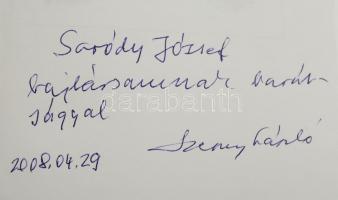 Saródy József
bajtársamnak barát-
sággal
darabanth
László
2008.04.29